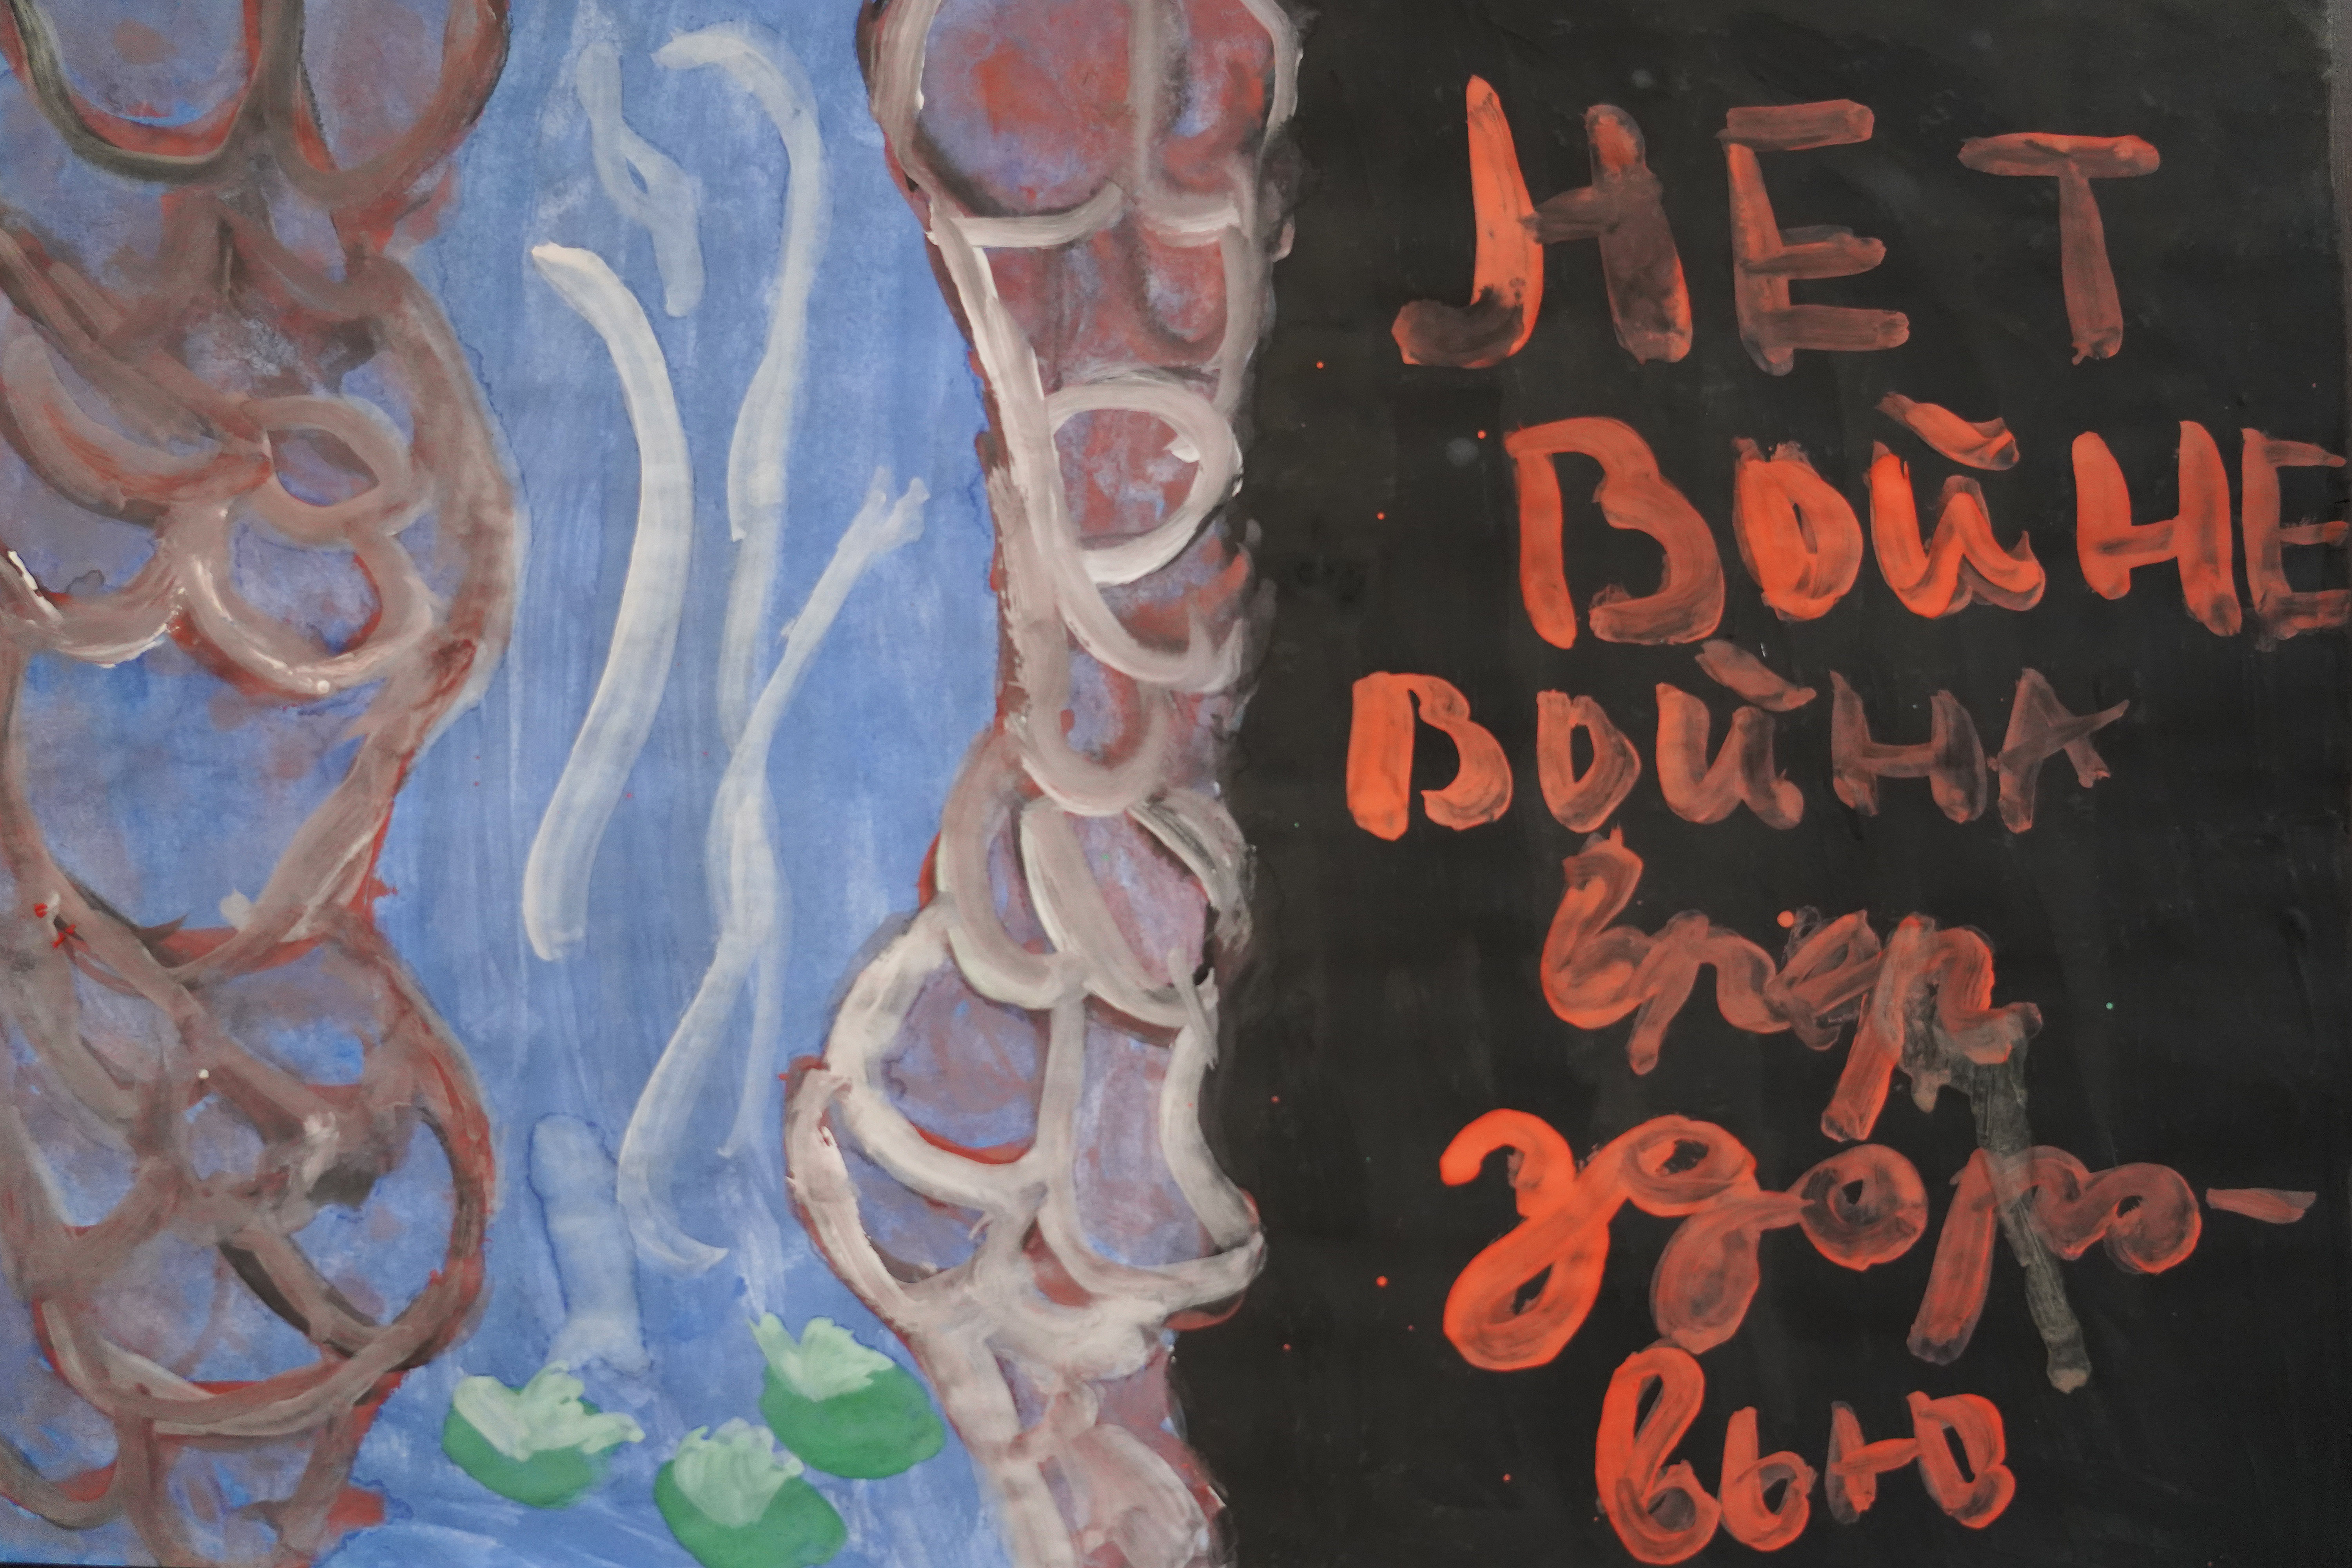 НЕТ
ВОЙНЕ
ВОЙНА
вред
здоро-
вью